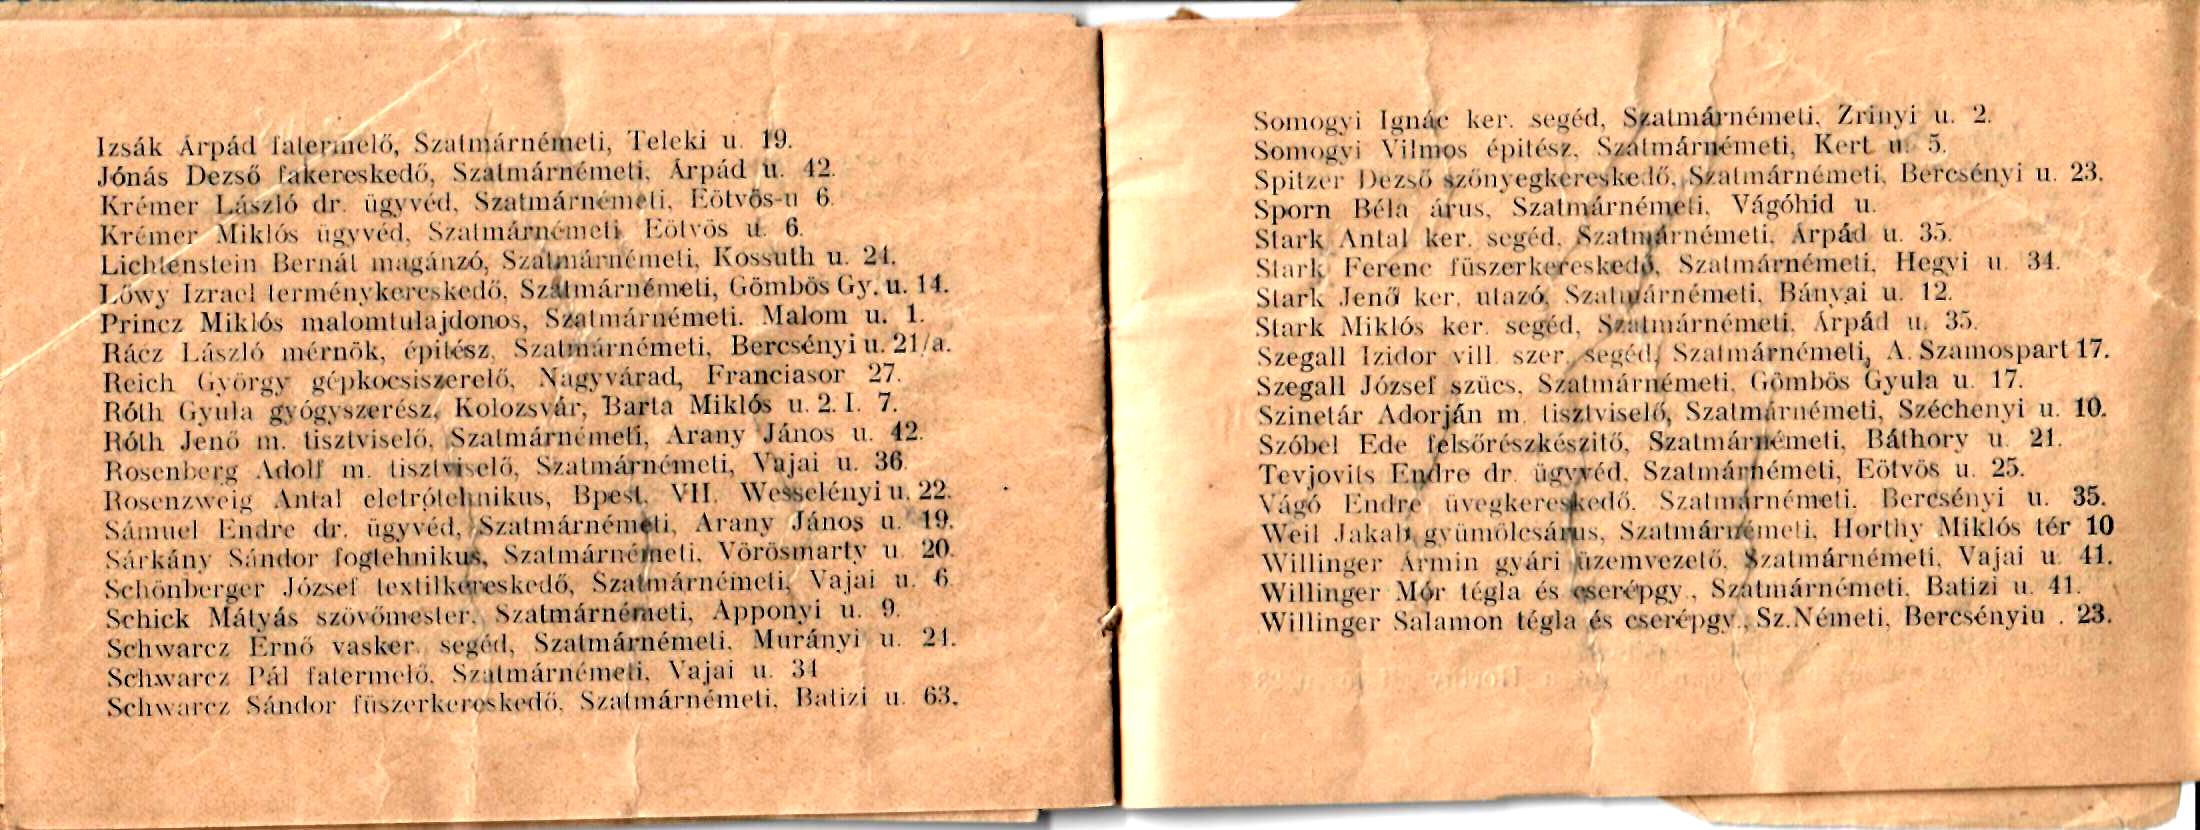 Izsák Árpád fatermelő, Szatmárnémeti, Teleki u. 19.
Jónás Dezső fakereskedő, Szatmárnémeti, Árpád u. 42.
Krémer László dr. ügyvéd, Szatmárnémeti, Eötvös-u 6.
Krémer Miklós ügyvéd, Szatmárnémeti Eötvös u. 6.
Lichtenstein Bernát magánzó, Szatmárnémeti, Kossuth u. 24.
Lőwy Izrael terménykereskedő, Szatmárnémeti, Gömbös Gy. u. 14.
Princz Miklós malomtulajdonos, Szatmárnémeti. Malom u. 1.
Rácz László mérnök, épitész, Szatmárnémeti, Bercsényi u. 21/a.
Reich György gépkocsiszerelő, Nagyvárad, Franciasor 27.
Róth Gyula gyógyszerész, Kolozsvár, Barta Miklós u. 2. I. 7.
Róth Jenő m. tisztviselő, Szatmárnémeti, Arany János u. 42.
Rosenberg Adolf m. tisztviselő, Szatmárnémeti, Vajai u. 36.
Rosenzweig Antal eletrótehnikus, Bpest, VII. Wesselényi u. 22.
Sámuel Endre dr. ügyvéd, Szatmárnémeti, Arany János u. 19.
Sárkány Sándor fogtehnikus, Szatmárnémeti, Vörösmarty u. 20.
Schönberger József textilkereskedő, Szatmárnémeti, Vajai u. 6.
Schick Mátyás szövőmester, Szatmárnémeti, Apponyi u. 9.
Schwarcz Ernő vasker. segéd, Szatmárnémeti, Murányi u. 21.
Schwarcz Pál fatermelő, Szatmárnémeti, Vajai u. 34
Schwarcz Sándor füszerkereskedő, Szatmárnémeti, Batizi u. 63.
Somogyi Ignác ker. segéd, Szatmárnémeti, Zrinyi u. 2.
Somogyi Vilmos épitész, Szatmárnémeti, Kert u. 5.
Spitzer Dezső szőnyegkereskedő, Szatmárnémeti, Bercsényi u. 23.
Sporn Béla árus, Szatmárnémeti, Vágóhid u.
Stark Antal ker. segéd, Szatmárnémeti, Árpád u. 35.
Stark Ferenc füszerkereskedő, Szatmárnémeti, Hegyi u. 34.
Stark Jenő ker. utazó, Szatmárnémeti, Bányai u. 12.
Stark Miklós ker. segéd, Szatmárnémeti, Árpád u. 35.
Szegall Izidor vill. szer. segéd, Szatmárnémeti, A. Szamospart 17.
Szegall József szücs, Szatmárnémeti, Gömbös Gyula u. 17.
Szinetár Adorján m. tisztviselő, Szatmárnémeti, Széchenyi u. 10.
Szóbel Ede felsőrészkészitő, Szatmárnémeti, Báthory u. 21.
Tevjovits Endre dr. ügyvéd, Szatmárnémeti, Eötvös u. 25.
Vágó Endre üvegkereskedő, Szatmárnémeti, Bercsényi u. 35.
Weil Jakab gyümölcsárus, Szatmárnémeti, Horthy Miklós tér 10
Willinger Ármin gyári üzemvezető, Szatmárnémeti, Vajai u. 41.
Willinger Mór tégla és cserépgy., Szatmárnémeti, Batizi u. 41.
Willinger Salamon tégla és cserépgy., Sz.Németi, Bercsényiu . 23.